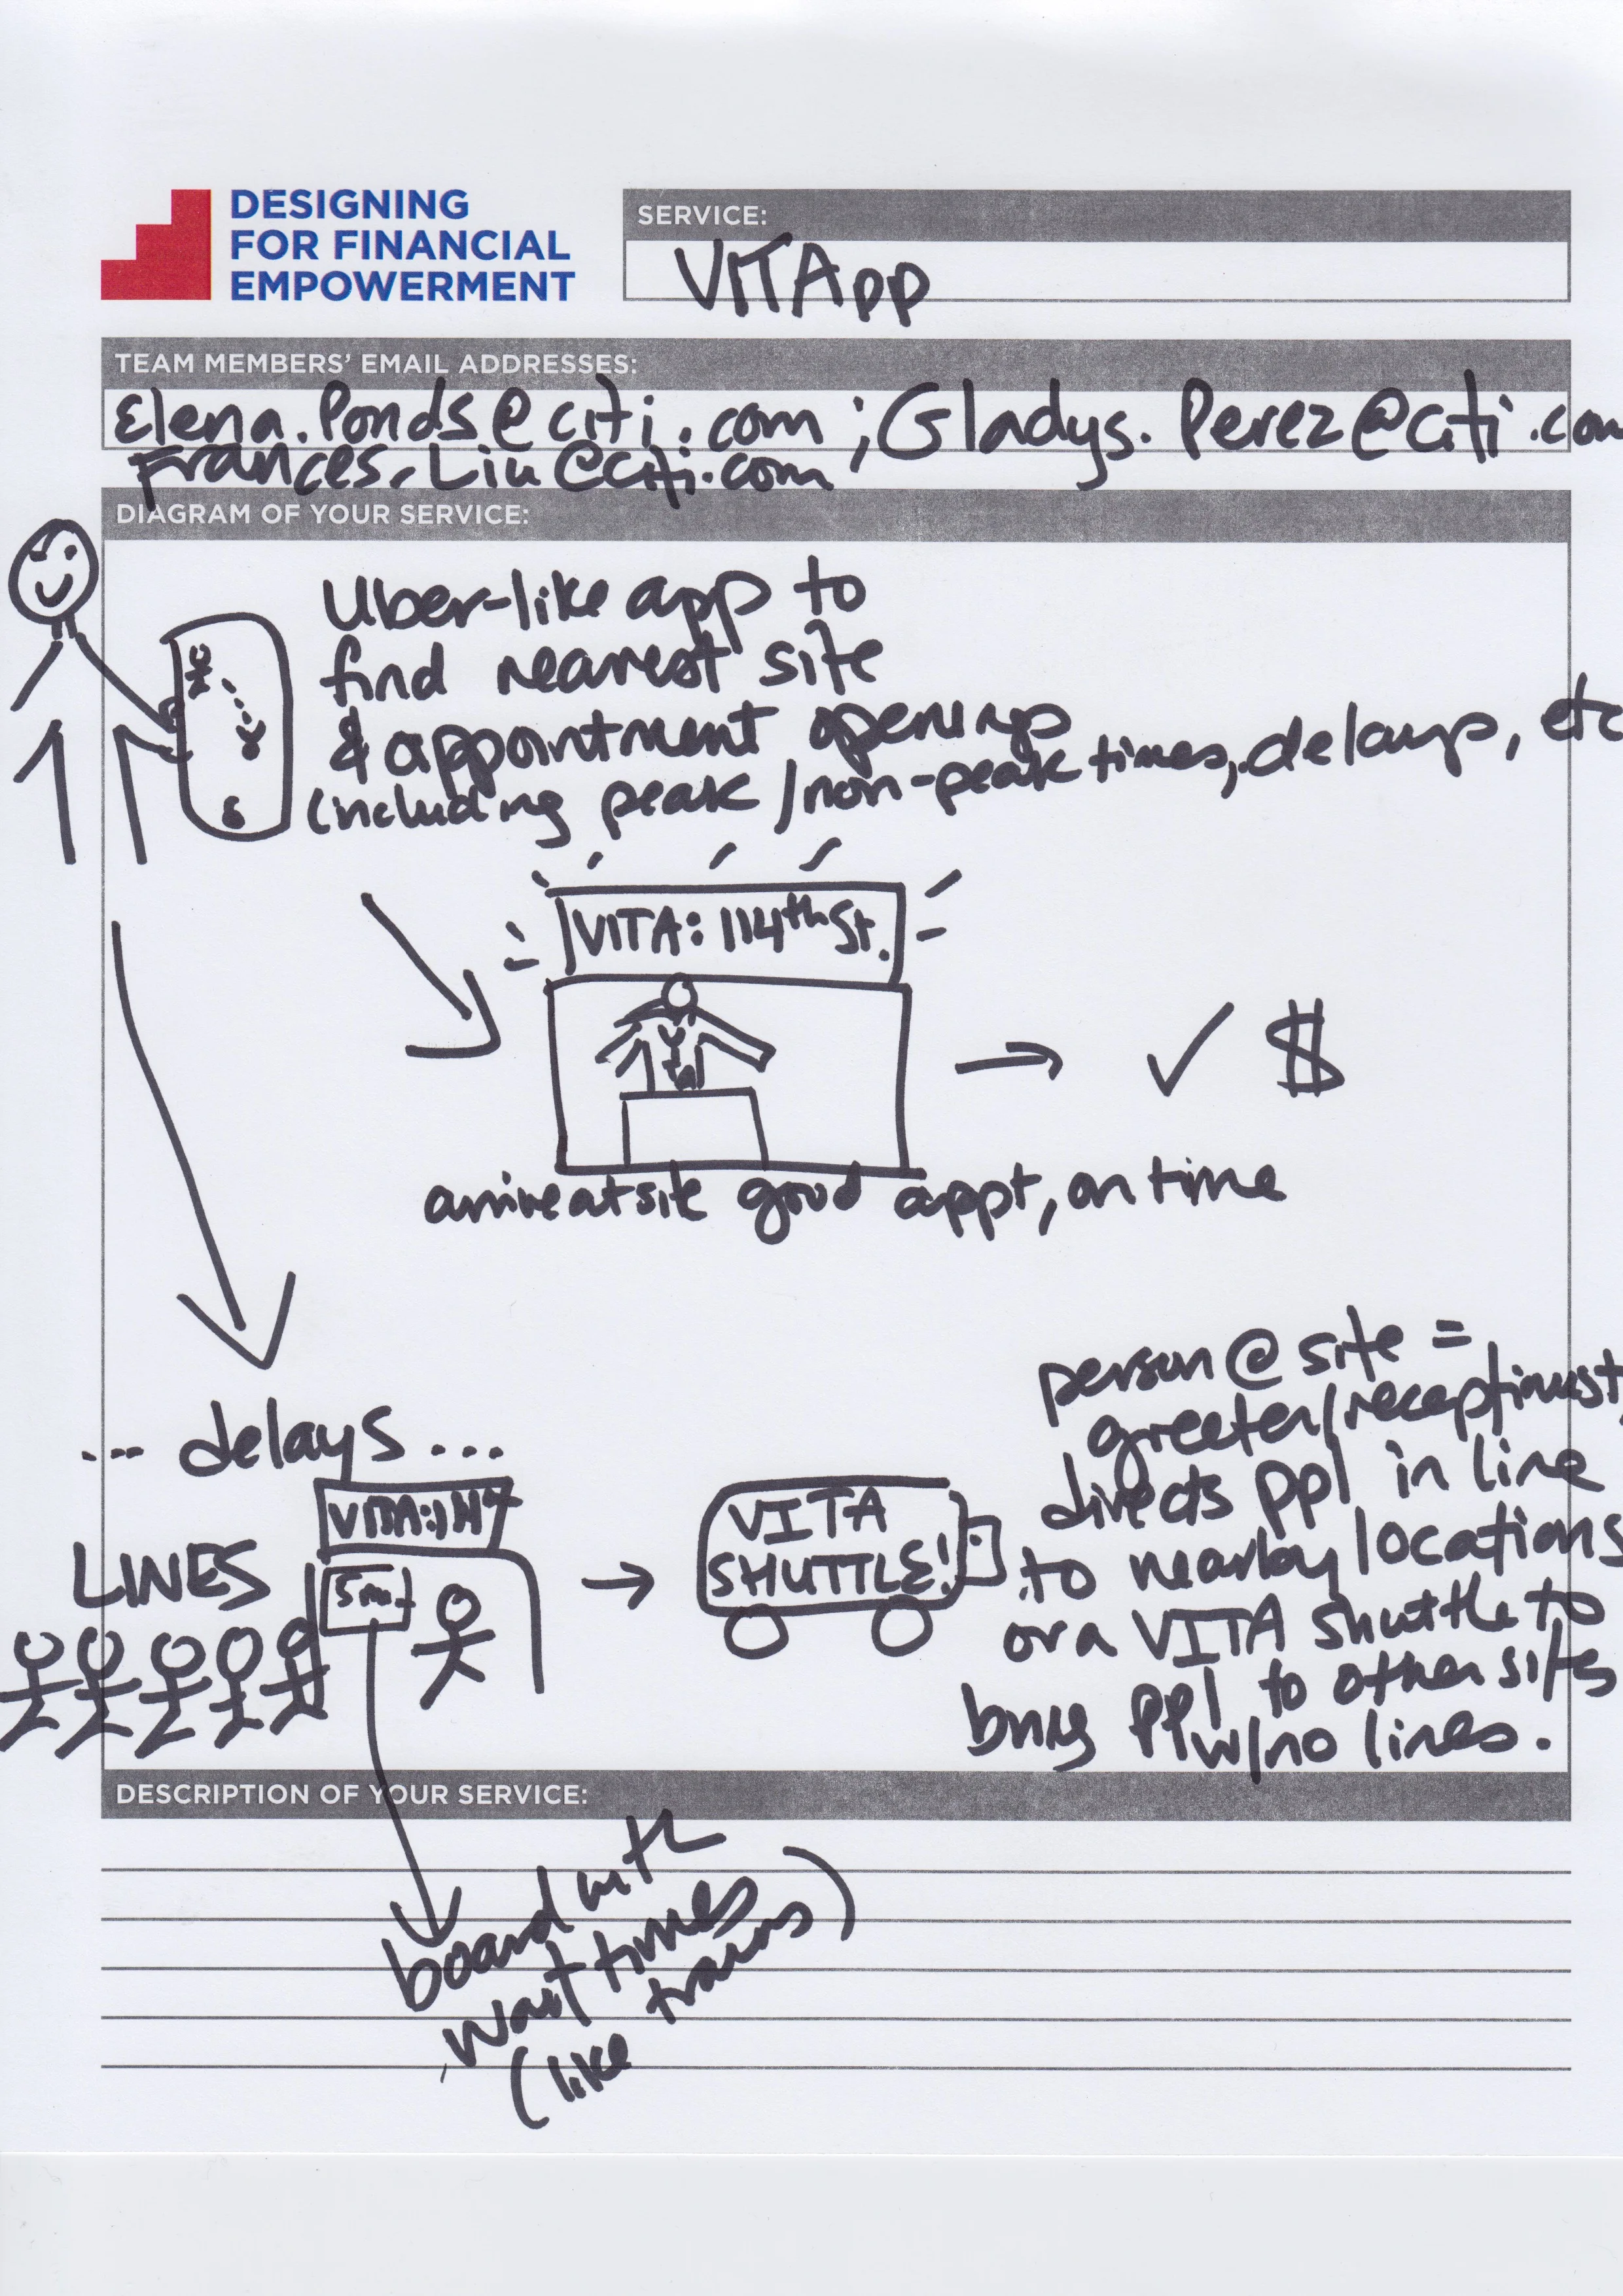 DESIGNING
FOR FINANCIAL
EMPOWERMENT
SERVICE:
VITApp
TEAM MEMBERS' EMAIL ADDRESSES:
Elena.Ponds@citi.com ; Gladys.Perez@citi.com
Frances.Liu@citi.com
DIAGRAM OF YOUR SERVICE:
Uber-like app to
find nearest site
& appointment openings
(including peak/non-peak times, delays, etc
VITA: 114th St.
✓ $
arrive at site good appt, on time
... delays ...
LINES
VITA:
5 m.
VITA
SHUTTLE!
person @ site =
greeter/receptionist,
directs ppl in line
to nearby locations
or a VITA shuttle to
bring ppl to other sites
w/no lines.
DESCRIPTION OF YOUR SERVICE:
board with
wait times
(like trains)